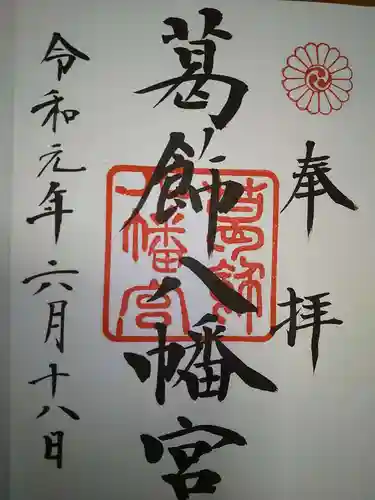 奉拝
葛飾八幡宮
葛飾
八幡宮
令和元年六月十八日